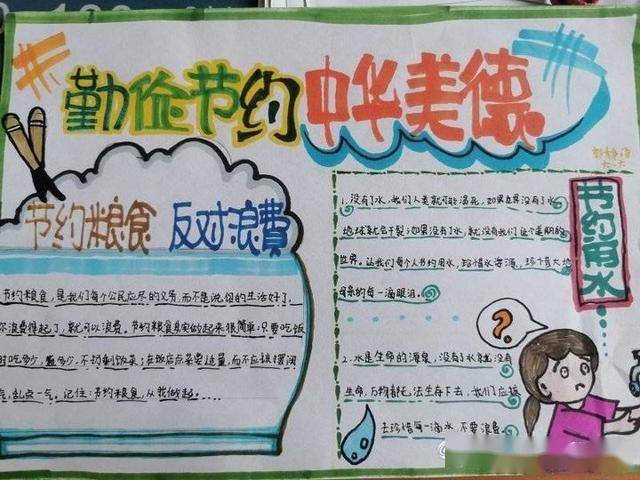 勤俭节约 中华美德
节约粮食 反对浪费
节约粮食,是我们每个公民应尽的义务,而不是说你的生活好了,
你浪费得起了,就可以浪费。节约粮食其实做起来很简单:只要吃饭
时吃多少,盛多少,不扔剩饭菜;在饭店点菜要适量,而不应该摆阔
气,乱点一气。记住:节约粮食,从我做起……
节约用水……
1.没有了水,我们人类就
如果世界没有了水
地球就会干裂;如果没有了水,就没有我们这个美丽的
世界。让我们每个人节约用水,珍惜水资源,珍惜大地
母亲的每一滴眼泪。
2.水是生命的源泉,没有了水就没有
生命,万物都无法生存下去,我们应该
去珍惜每一滴水,不要浪费。
?
六